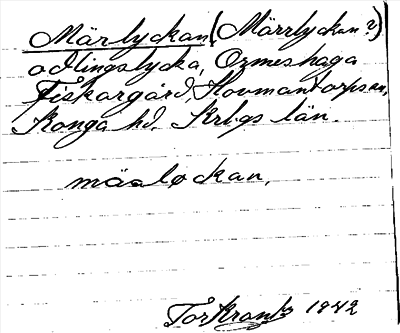 Märlyckan (Märrlyckan?)
odlingslycka, Ormeshaga
Fiskargård, Hovmantorps sn,
Konga hd. Krbgs län.
mäalọckan,
Tor Krantz 1942